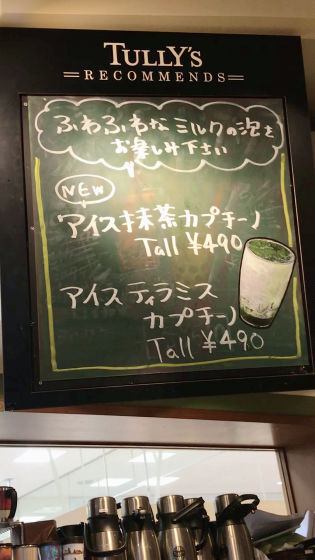 TULLY'S
RECOMMENDS
ふわふわな ミルクの泡を
お楽しみ下さい
NEW
アイス抹茶カプチーノ
Tall ¥490
アイス ティラミス
カプチーノ
Tall ¥490